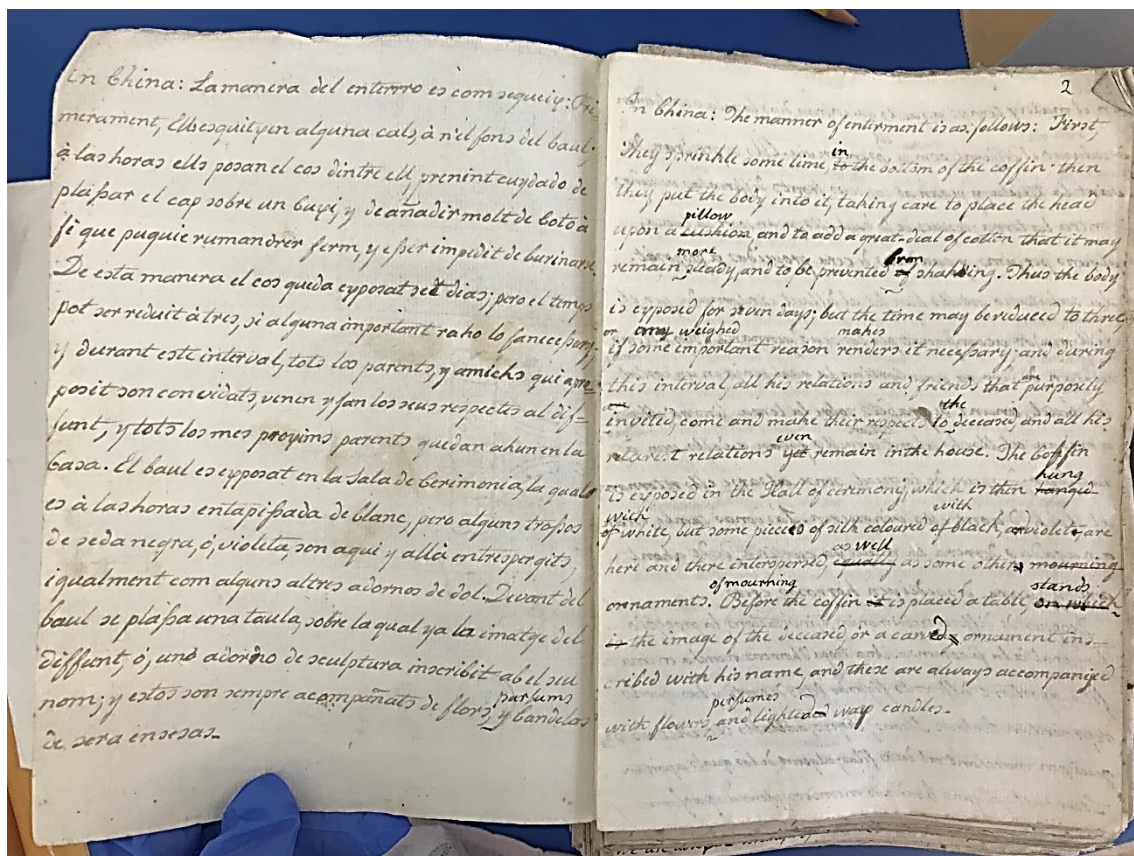 In China: La manera del enterro es com segueix: Pri
merament, Ells esquitxen alguna cals, à n'el fons del baul;
à las horas ells posan el cos dintre ell, prenint cuydado de
plassar el cap sobre un cuxi, y de añadir molt de coto à
fi que puguie rumandrer ferm, y esser impedit de burinarse,
De esta manera el cos queda exposat set dias; pero el temps
pot ser reduit à tres, si alguna important raho lo fa necessari.
y durant este interval, tots los parents, y amichs qui apro
posit son convidats, venen y fan los seus respectes al dif-
funt, y tots los mes proxims parents quedan ahun en la
Casa. El baul es exposat en la Sala de Cerimonia, la qual
es à las horas entapissada de blanc, pero alguns trossos
de seda negra, ó, violeta, son aqui y allà entrespergits,
igualment com alguns altres adornos de dol. Devant del
baul se plassa una taula, sobre la qual ya la imatge del
diffunt, ó, uno adorno de sculptura inscribit ab el seu
nom; y estos son sempre acompañats de flors, y Candelas
parfums
de sera ensesas.
2
In China: The manner of enterment is as follows: First,
in
They sprinkle some lime to the botism of the coffin: then
they put the body into it, taking care to place the head
pillow
upon a cushion, and to add a great deal of cotton that it may
more from
remain steady, and to be prevented of shakking. Thus the body
is exposed for seven days; but the time may be reduced to three
or any weighed makes
if some important reason renders it necessary; and during
this interval, all his relations and friends that purposely
are
invited, come and make their respects to deceased, and all his
the
nearest relations yet remain in the house. The Coffin
even
hung
is exposed in the Hall of ceremony, which is then hanged
with with
of white, but some pieces of silk coloured of black, or violet, are
as well
here and there interspersed, equally as some other mourning
of mourning stands
ornaments. Before the coffin is placed a table on which
is the image of the deceased, or a carved ornament ins-
cribed with his name, and these are always accompanied
perfumes
with flowers, and lighted wax candles.